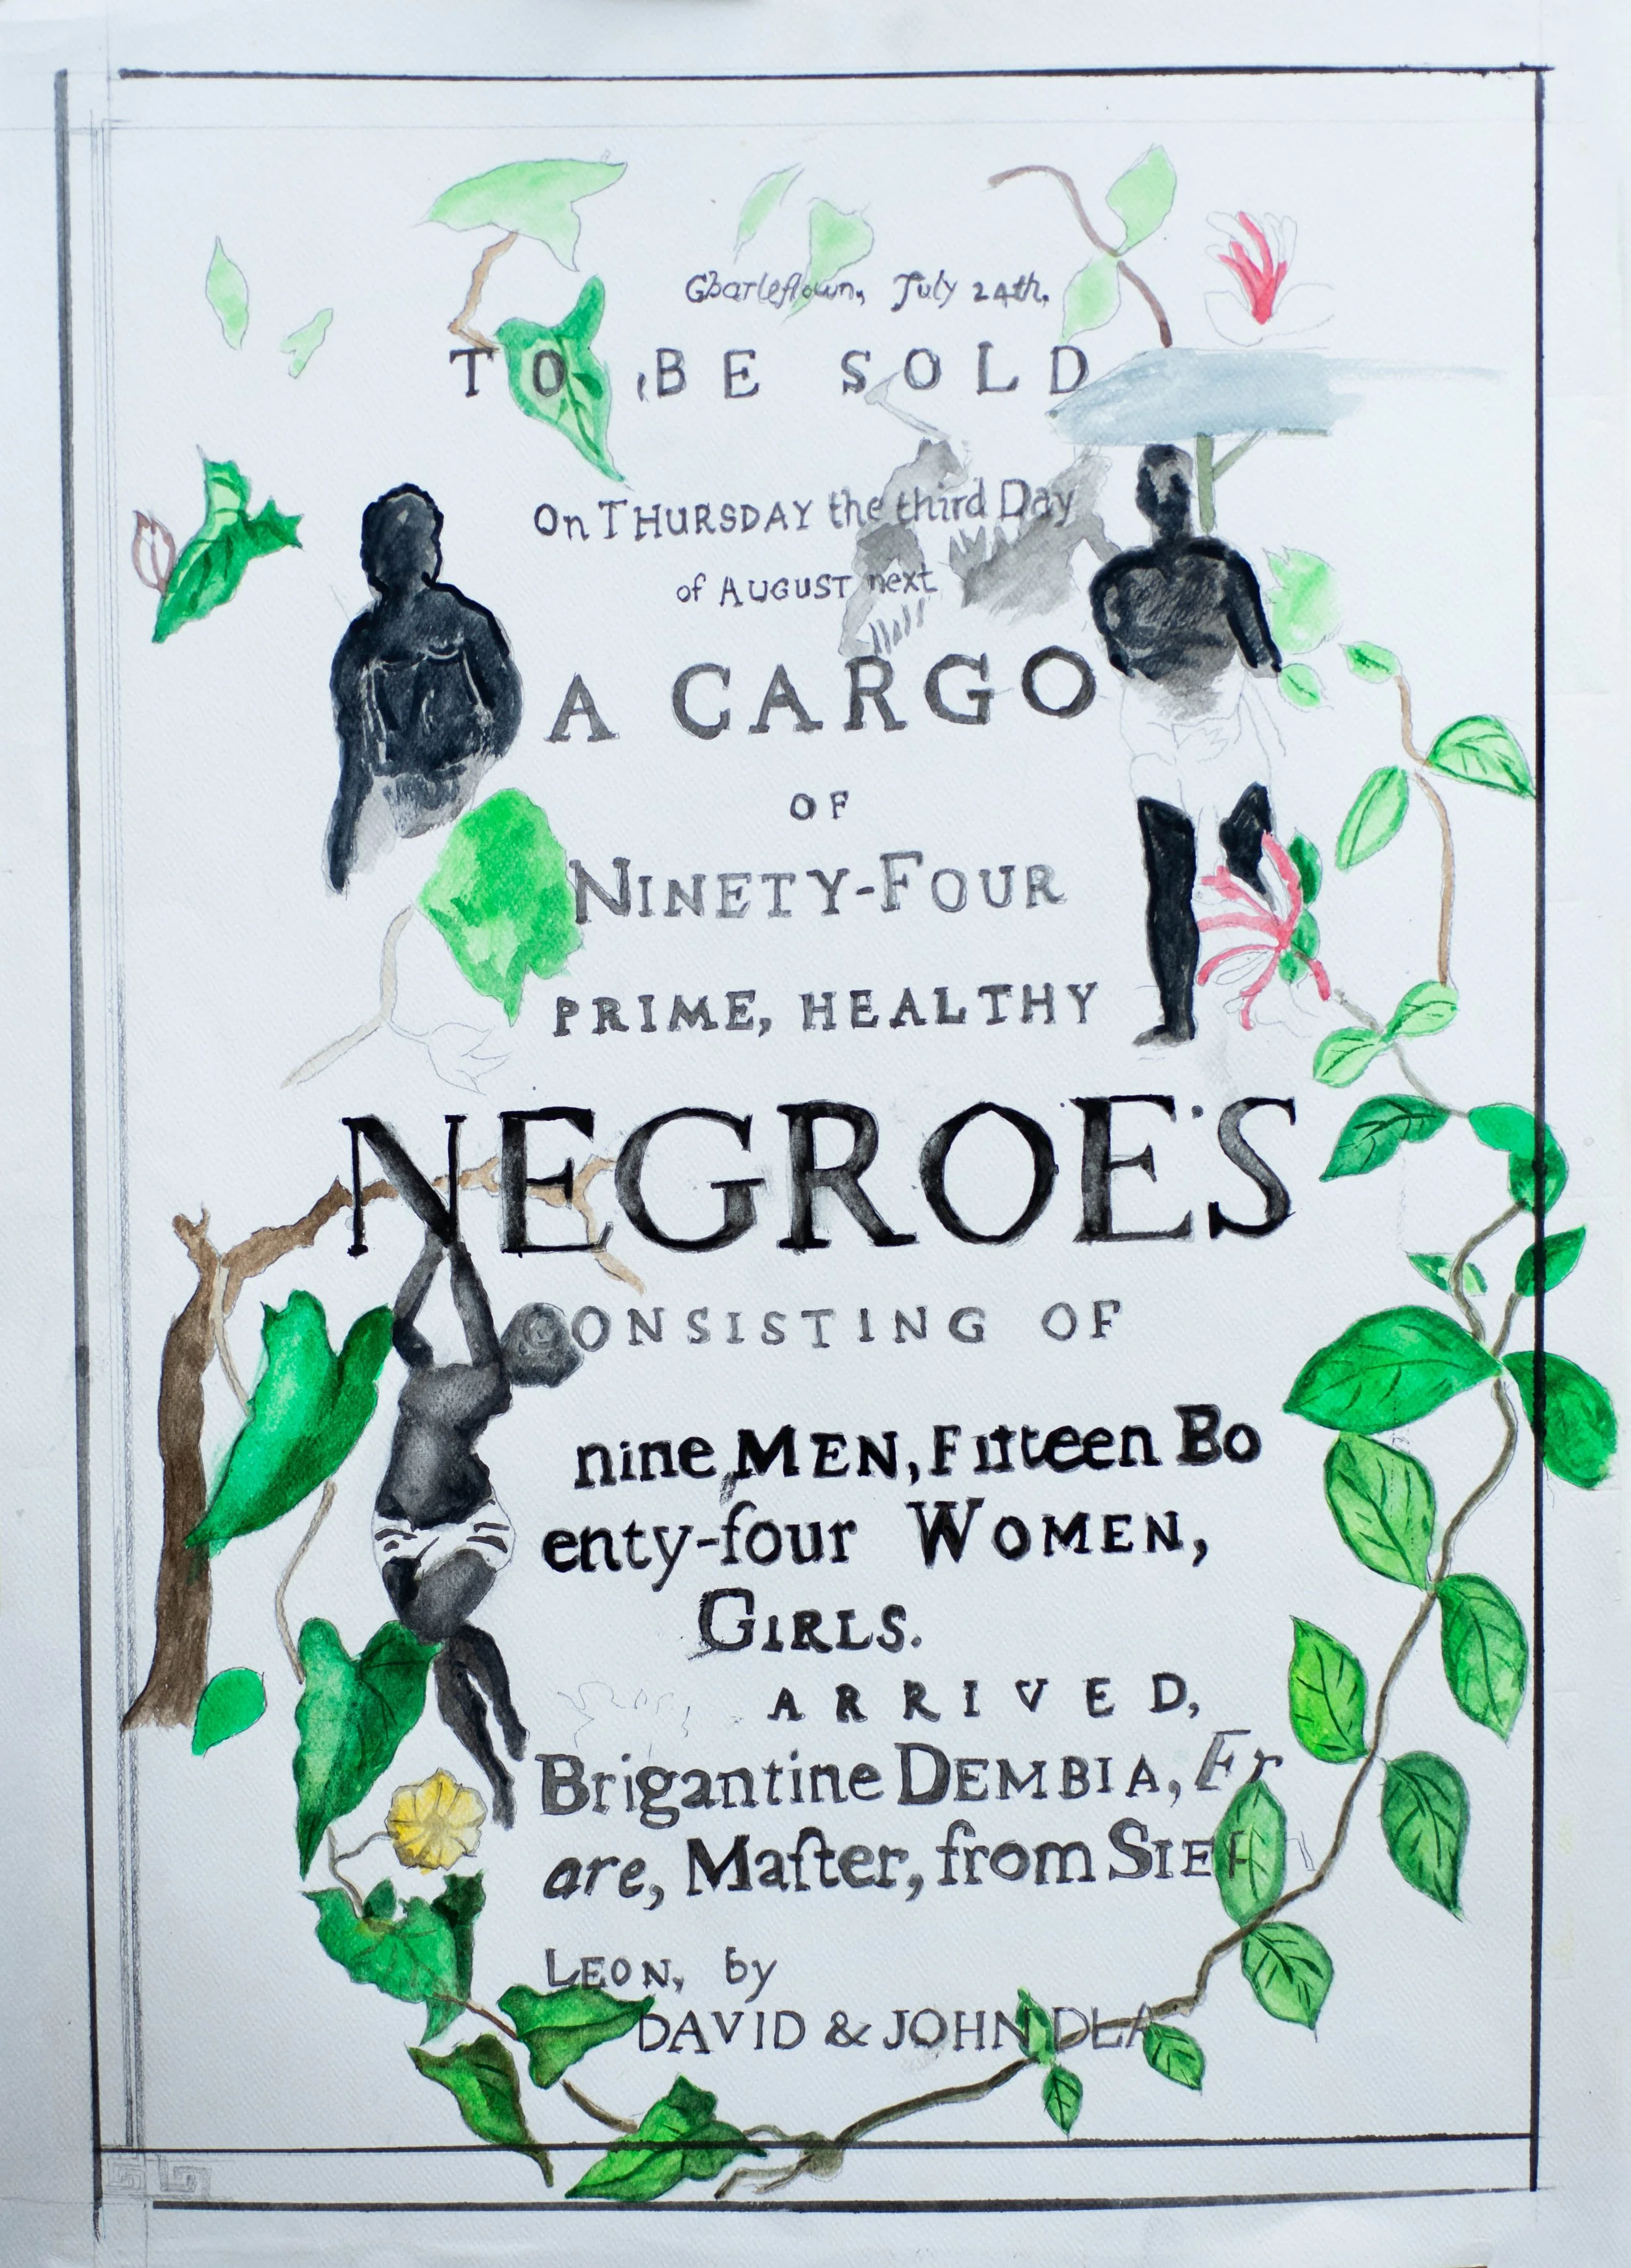 Charleſtown, July 24th,
TO BE SOLD
On THURSDAY the third Day
of AUGUST next
A CARGO
OF
NINETY-FOUR
PRIME, HEALTHY
NEGROE'S
CONSISTING OF
nine MEN, Fifteen Bo
enty-four WOMEN,
GIRLS.
ARRIVED,
Brigantine DEMBIA, Fr
are, Maſter, from SIER
LEON, by
DAVID & JOHN DEA